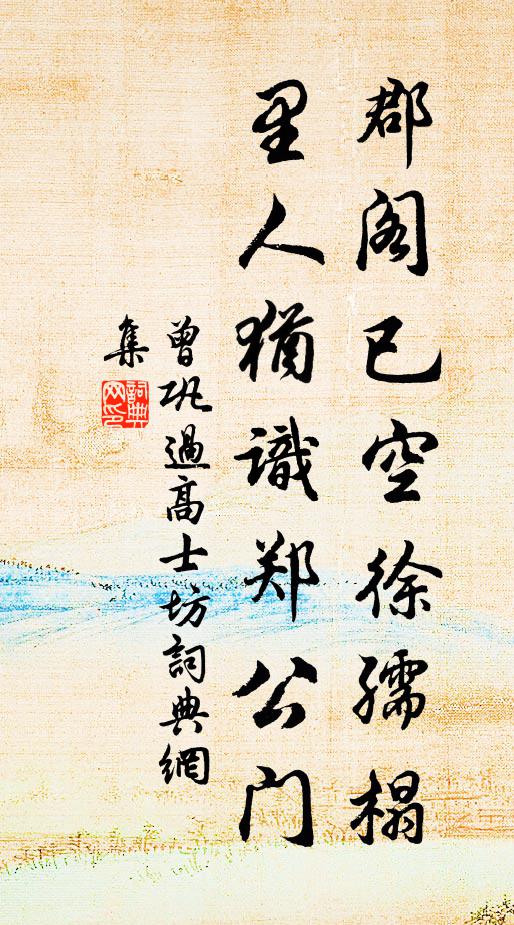 郡阁已空徐孺榻
里人犹識郑公门
曾巩過高士坊詞典網
集
詞典
网印